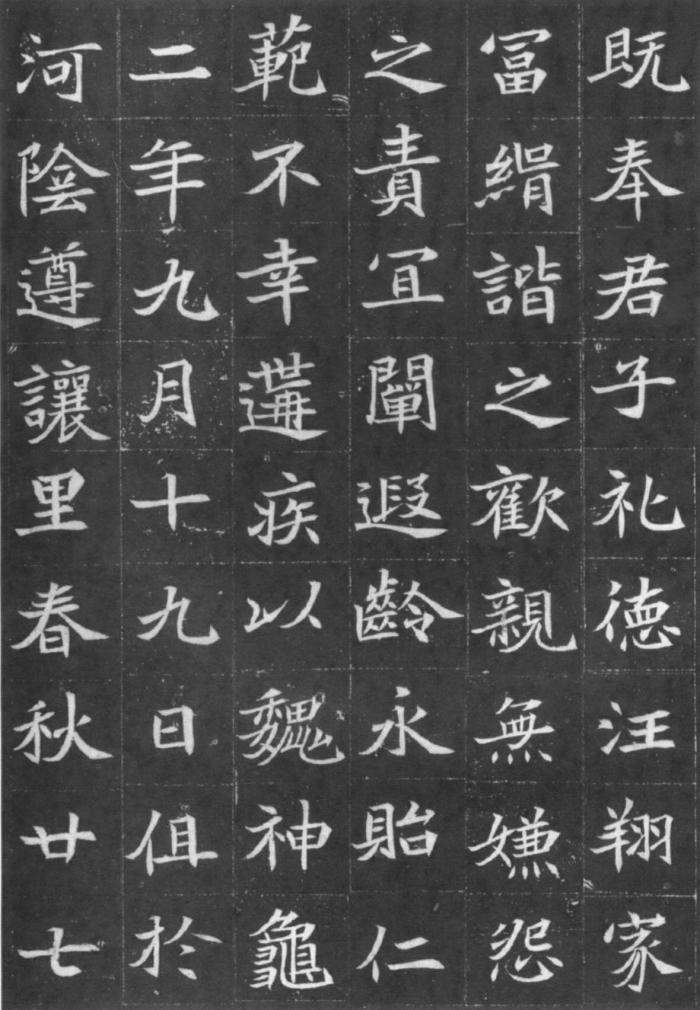 既奉君子礼德汪翔家
冨緝諧之歡親無嫌怨
之責冝闡遐齡永貽仁
範不幸遘疾以魏神龜
二年九月十九日伹於
河陰遵讓里春秋廿七